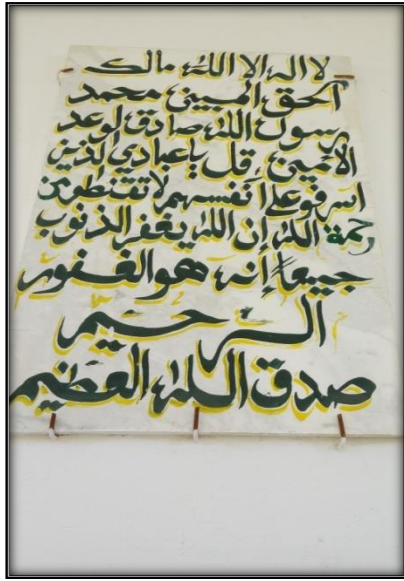 لا اله الا الله مالك
الحق المبين محمد
رسول الله صادق لوعد
الأمين قل يا عبادي الذين
اسرفو على أنفسهم لا تقنطو من
رحمة الله إن الله يغفر الذنوب
جميعاً إنه هو الغفور
الرحيم
صدق الله العظيم